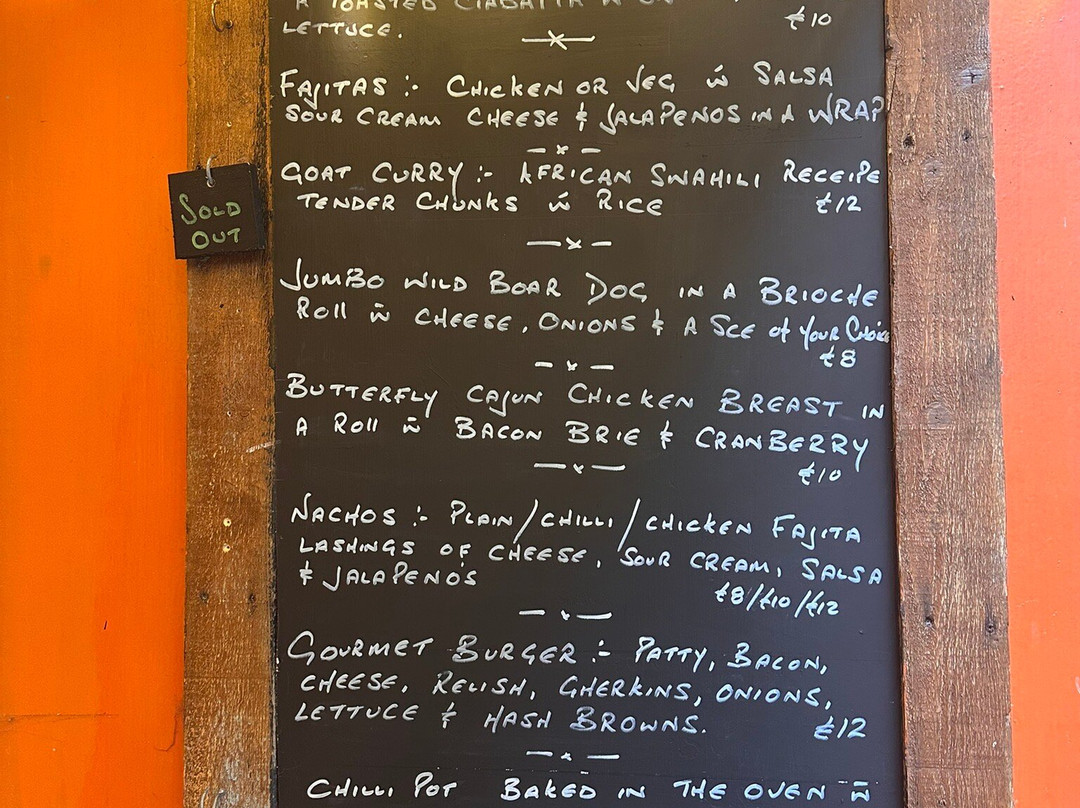 A TOASTED CIABATTA
LETTUCE. £10
FAJITAS :- CHICKEN OR VEG w̄ SALSA
SOUR CREAM CHEESE & JALAPENOS IN A WRAP
GOAT CURRY :- AFRICAN SWAHILI RECEIPE
TENDER CHUNKS w̄ RICE £12
SOLD
OUT
JUMBO WILD BOAR DOG IN A BRIOCHE
ROLL w̄ CHEESE, ONIONS & A SCE of YOUR CHOICE
£8
BUTTERFLY CAJUN CHICKEN BREAST IN
A ROLL w̄ BACON BRIE & CRANBERRY
£10
NACHOS :- PLAIN/CHILLI/CHICKEN FAJITA
LASHINGS OF CHEESE, SOUR CREAM, SALSA
& JALAPENO'S
£8/£10/£12
GOURMET BURGER :- PATTY, BACON,
CHEESE, RELISH, GHERKINS, ONIONS,
LETTUCE & HASH BROWNS. £12
CHILLI POT BAKED IN THE OVEN w̄